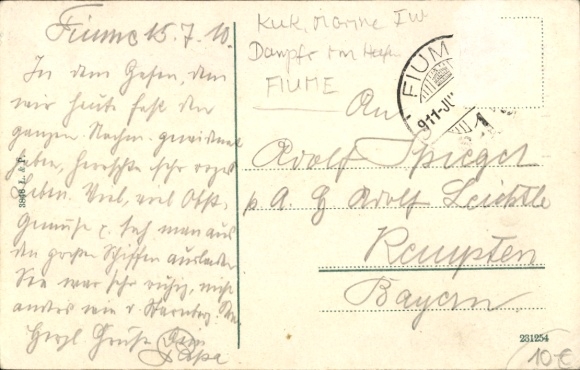 Fiume 15.7.10.
In dem Hafen, dem
wir heute fast den
ganzen Nachm. gewidmet
haben, herrschte sehr reges
Leben. Viel, viel Obst,
Gemüse z. sah man aus
den großen Schiffen ausladen
See war sehr ruhig, nicht
anders wie d. Starnberg. See
Herzl. Grüße Dein
Papa
3868 L. & P.
KuK. Marine
Dampfr im Hafen
FIUME
FIUM
911-JU
1
An
Adolf Spiegel
p. A. H Adolf Leichtle
Kempten
Bayern
231254
10-€